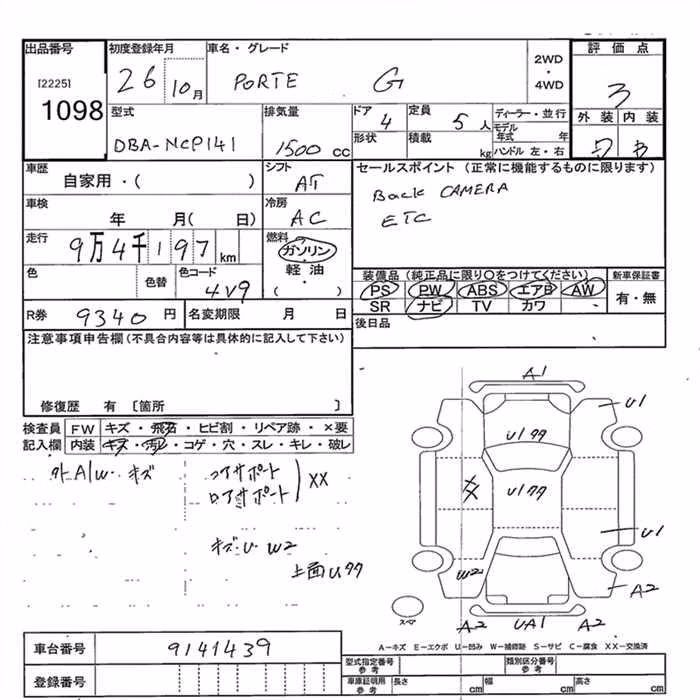 出品番号 初度登録年月 車名・グレード 2WD ・ 4WD 評価点
[2225] 1098 26 10月 PORTE G 3
型式 排気量 ドア 4 定員 5人 ディーラー・並行 外装 内装
DBA-NCP141 1500cc 形状 積載 kg モデル年式 年 ハンドル 左・右 B
車歴 シフト セールスポイント (正常に機能するものに限ります)
自家用・( ) AT Back CAMERA
車検 冷房 ETC
年 月( 日) AC
走行 燃料
9万4千197km ガソリン
色 色替 色コード 軽油 装備品 (純正品に限り○をつけてください) 新車保証書
4V9 ( ) PS PW ABS エアB AW 有・無
R券 9340円 名変期限 月 日 SR ナビ TV カワ
注意事項申告欄 (不具合内容等は具体的に記入して下さい) 後日品
修復歴 有 [箇所 ]
検査員 FW キズ・飛石・ヒビ割・リペア跡・×要
記入欄 内装 キズ・汚レ・コゲ・穴・スレ・キレ・破レ
外A/W・キズ コアサポート
ロアサポート XX
キズ・U W2
上面Uククク
A1
U1
U1クク
U1クク
U1
W2 A2
A2 UA1 A2
スペア
A-キズ E-エクボ U-凹み W-補修跡 S-サビ C-腐食 XX-交換済
車台番号 9141439 型式指定番号 参考 類別区分番号 参考
登録番号 車庫証明用 参考 長さ cm 幅 cm 高さ cm